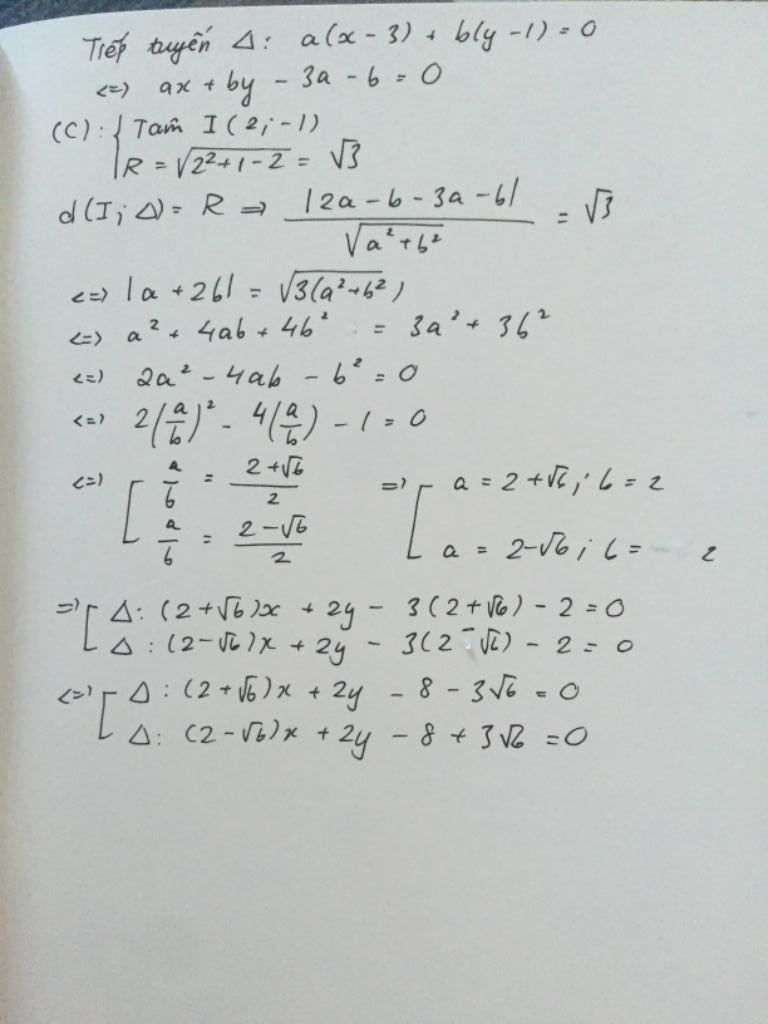 Tiếp tuyến Δ: a(x - 3) + b(y - 1) = 0
<=> ax + by - 3a - b = 0
(C): { Tâm I(2; -1)
R = √(2² + 1 - 2) = √3
d(I; Δ) = R => |2a - b - 3a - b| / √(a² + b²) = √3
<=> |a + 2b| = √(3(a² + b²))
<=> a² + 4ab + 4b² = 3a² + 3b²
<=> 2a² - 4ab - b² = 0
<=> 2(a/b)² - 4(a/b) - 1 = 0
<=> [ a/b = (2 + √6)/2 => [ a = 2 + √6; b = 2
a/b = (2 - √6)/2 a = 2 - √6; b = 2
=> [ Δ: (2 + √6)x + 2y - 3(2 + √6) - 2 = 0
Δ: (2 - √6)x + 2y - 3(2 - √6) - 2 = 0
<=> [ Δ: (2 + √6)x + 2y - 8 - 3√6 = 0
Δ: (2 - √6)x + 2y - 8 + 3√6 = 0